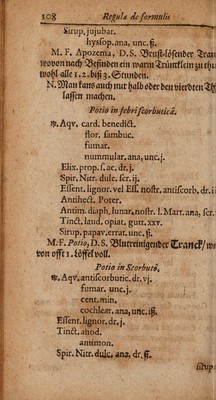 108 Regulæ de formulis
Sirup. jujubar.
hyssop. ana, unc. ß.
M. F. Apozema, D. S. Brust-lösender Tranck/
wovon nach Befinden ein warm Trüncklein zu thun/
wohl alle 1. 2. biß 3. Stunden.
N. Man kans auch nur halb oder den vierdten Theil
lassen machen.
Potio in febri scorbuticâ.
℞. Aqv. card. benedict.
flor. sambuc.
fumar.
nummular, ana, unc. j.
Elix. prop. s. ac. dr. j.
Spir. Nitr. dulc. scr. ij.
Essent. lignor. vel Ess. nostr. antiscorb, dr. i
Antihect. Poter.
Antim. diaph, lunar, nostr. l. Mart. ana, scr.
Tinct. laud. opiat. gutt. xxv.
Sirup. papav. errat. unc. ß.
M. F. Potio, D. S. Blutreinigender Tranck/ wo
von offt 1. Löffel voll.
Potio in Scorbuto.
℞. Aqv. antiscorbutic. dr. vj.
fumar. unc. j.
cent. min.
cochlear. ana, unc. iß.
Essent. lignor. dr. j.
Tinct. anod.
antimon.
Spir. Nitr. dulc. ana, dr. ß.